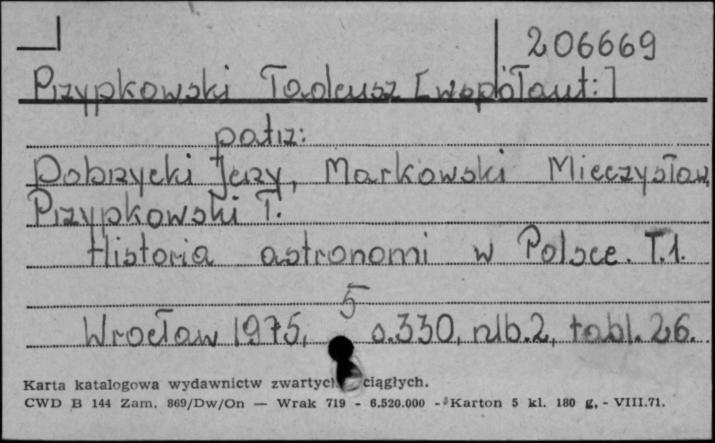 206669
Przypkowski Tadeusz [współaut:]
patrz:
Dobrzycki Jerzy, Markowski Mieczysław,
Przypkowski T.
Historia astronomi w Polsce. T.1.
5
Wrocław 1975, s.330, nlb.2, tabl. 26.
Karta katalogowa wydawnictw zwartych ciągłych.
CWD B 144 Zam. 869/Dw/On — Wrak 719 - 6.520.000 - Karton 5 kl. 180 g, - VIII.71.